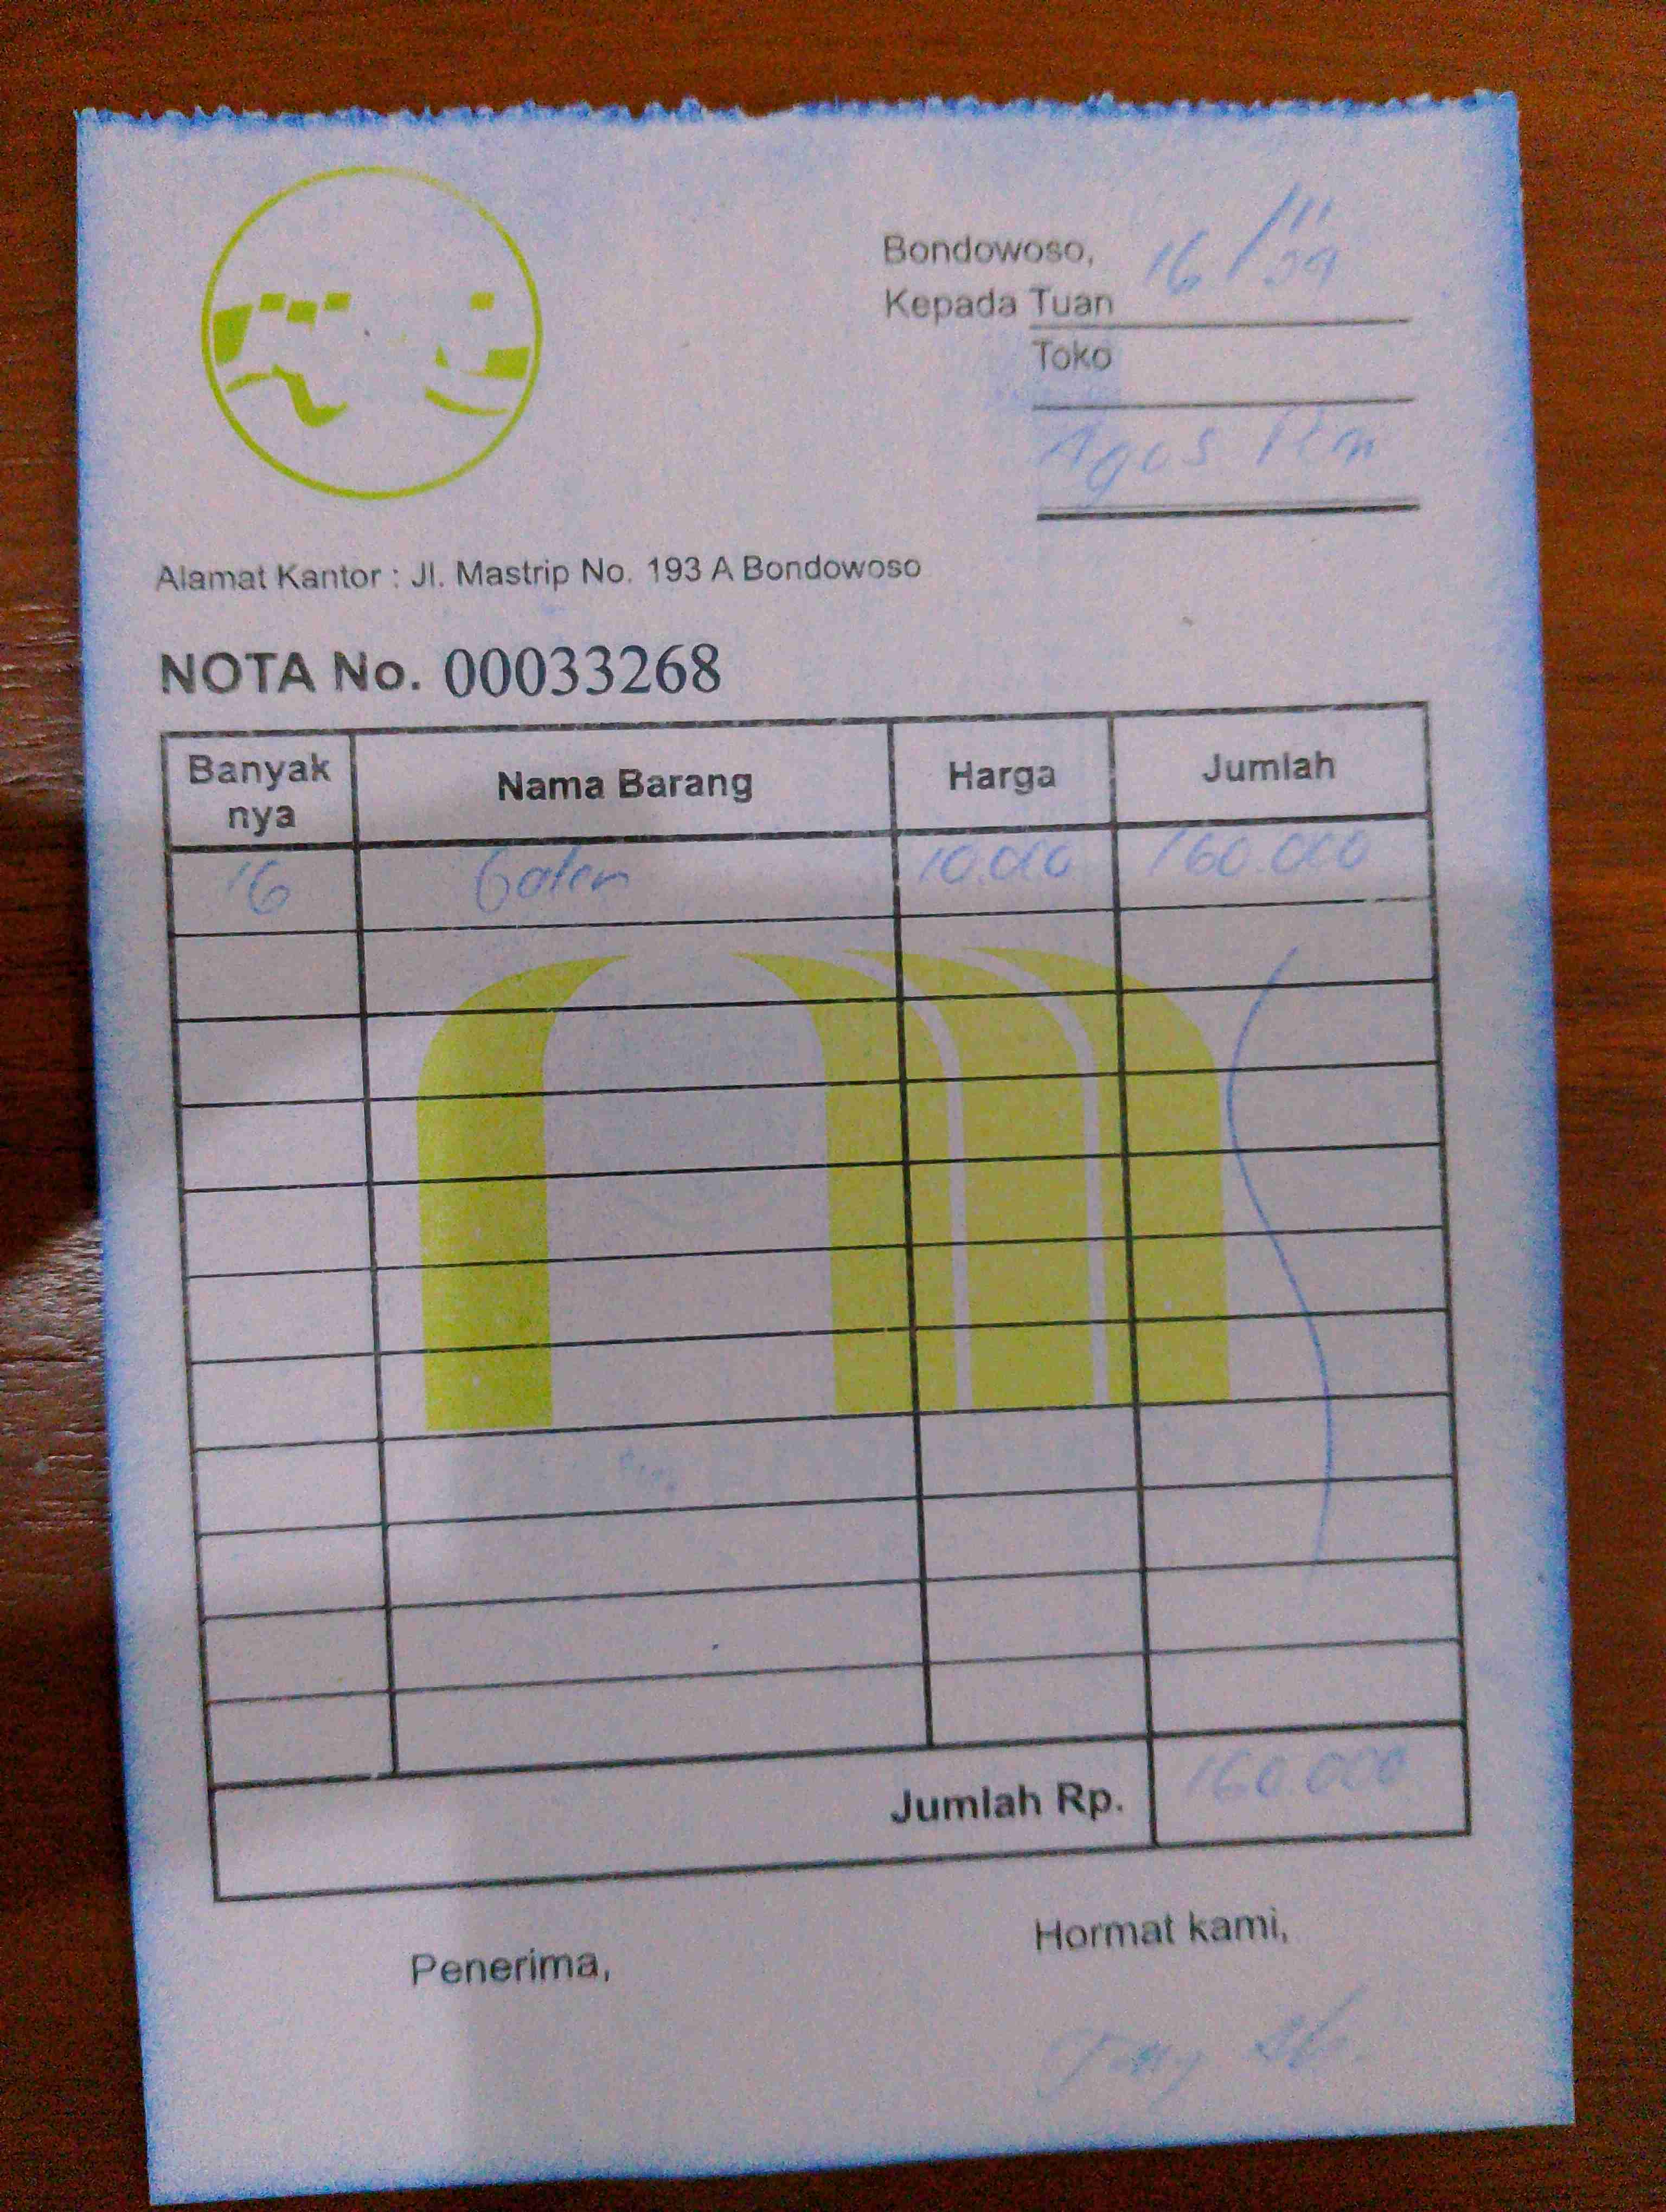 Bondowoso, 16/III
Kepada Tuan
Toko
Agus
Alamat Kantor : Jl. Mastrip No. 193 A Bondowoso
NOTA No. 00033268
Banyak nya Nama Barang Harga Jumlah
16 Galon 10.000 160.000
Jumlah Rp. 160.000
Penerima, Hormat kami,